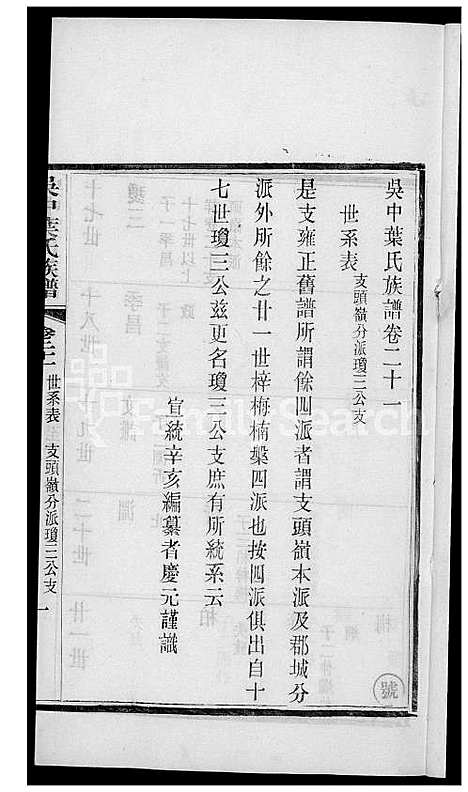 吳中葉氏族譜卷二十一
世系表 支頭嶺分派瓊三公支
是支雍正舊譜所謂餘四派者謂支頭嶺本派及郡城分
派外所餘之廿一世梓梅楠槃四派也按四派俱出自十
七世瓊三公茲更名瓊三公支庶有所統系云
宣統辛亥編纂者慶元謹識
吳中葉氏族譜 卷二十一 世系表 支頭嶺分派瓊三公支 一
號
FamilySearch